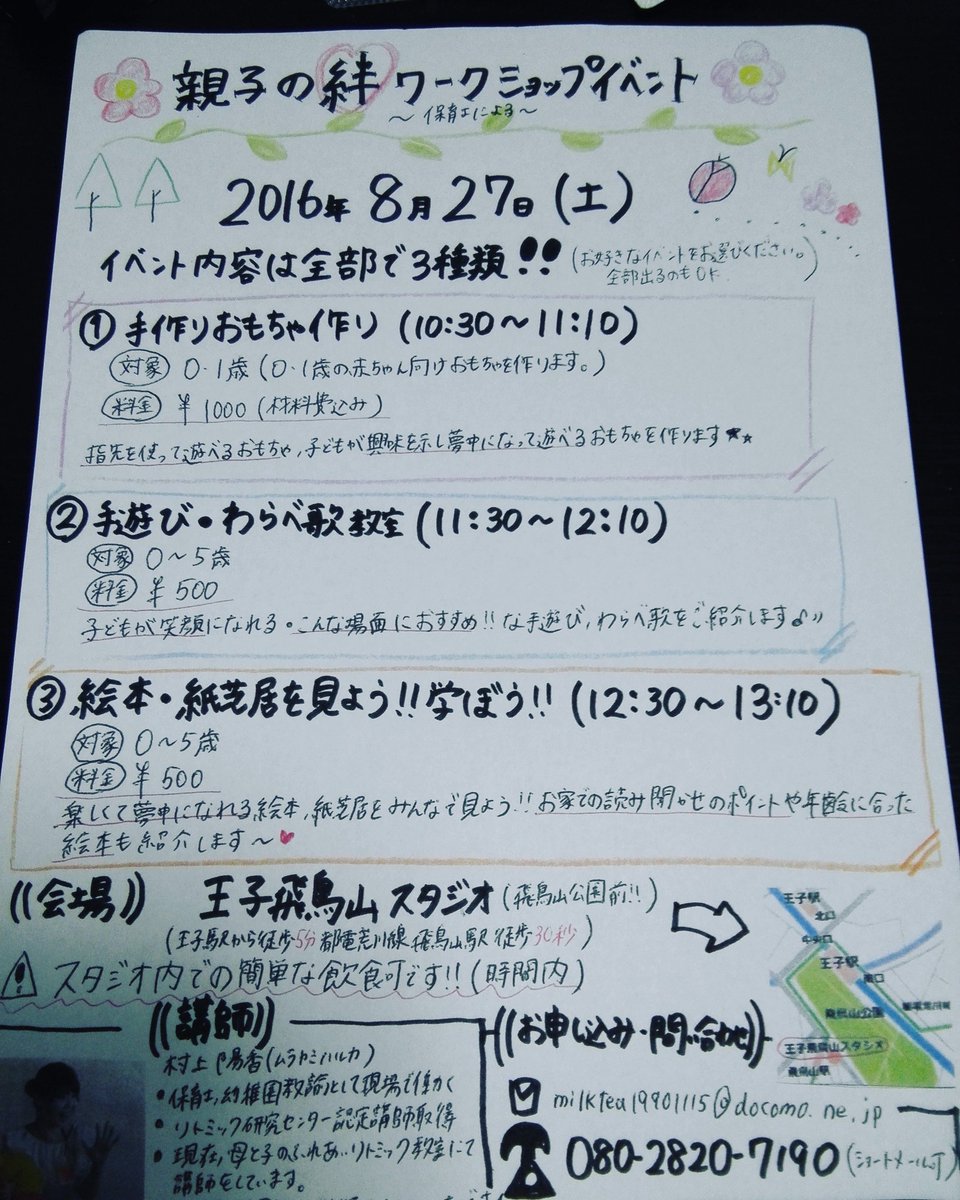 親子の絆ワークショップイベント
～保育士による～
2016年8月27日(土)
イベント内容は全部で3種類!!(お好きなイベントをお選びください。
全部出るのもOK)
①手作りおもちゃ作り(10:30～11:10)
対象 0・1歳(0・1歳の赤ちゃん向けおもちゃを作ります。)
料金 ¥1000(材料費込み)
指先を使って遊べるおもちゃ,子どもが興味を示し夢中になって遊べるおもちゃを作ります★★
②手遊び・わらべ歌教室(11:30～12:10)
対象 0～5歳
料金 ¥500
子どもが笑顔になれる・こんな場面におすすめ!!な手遊び,わらべ歌をご紹介します♪»
③絵本・紙芝居を見よう!!学ぼう!!(12:30～13:10)
対象 0～5歳
料金 ¥500
楽しくて夢中になれる絵本,紙芝居をみんなで見よう!!お家での読み聞かせのポイントや年齢に合った
絵本も紹介します～♥
((会場)) 王子飛鳥山スタジオ(飛鳥山公園前!!)
(王子駅から徒歩5分 都電荒川線 飛鳥山駅 徒歩30秒)
スタジオ内での簡単な飲食可です!!(時間内)
王子駅
北口
中央口
王子駅
南口
飛鳥山公園
都電荒川線
王子飛鳥山スタジオ
飛鳥山駅
((講師))
村上陽香(ムラカミハルカ)
•保育士,幼稚園教諭として現場で働く
•リトミック研究センター認定講師取得
•現在,母と子のふれあいリトミック教室にて
講師をしています。
((お申し込み・問い合わせ))
milktea19901115@docomo.ne.jp
080-2820-7190(ショートメール可)